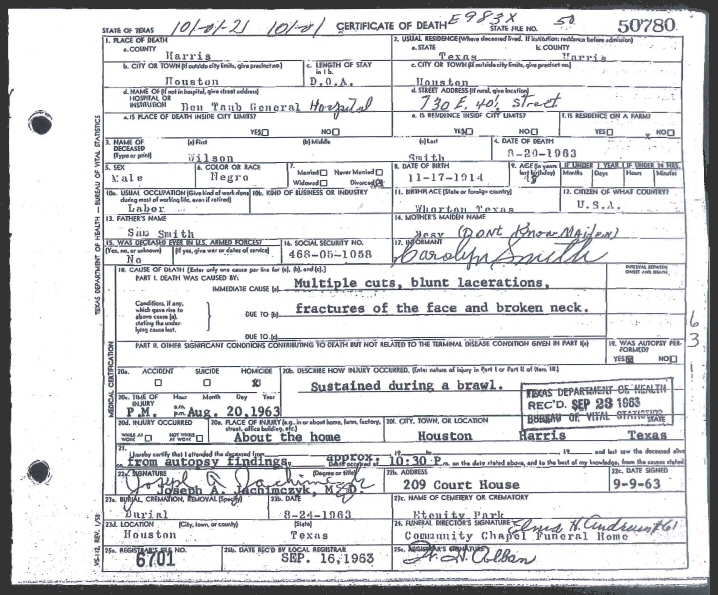 STATE OF TEXAS 101-01-21 101-01 CERTIFICATE OF DEATH E983X STATE FILE NO. 50 50780
1. PLACE OF DEATH
a. COUNTY
Harris
2. USUAL RESIDENCE (Where deceased lived. If institution: residence before admission)
a. STATE b. COUNTY
Texas Harris
b. CITY OR TOWN (If outside city limits, give precinct no.) c. LENGTH OF STAY in 1 b.
Houston D.O.A.
c. CITY OR TOWN (If outside city limits, give precinct no.)
Houston
d. NAME OF (If not in hospital, give street address) HOSPITAL OR INSTITUTION
Ben Taub General Hospital
d. STREET ADDRESS (If rural, give location)
730 E. 40½ Street
e. IS PLACE OF DEATH INSIDE CITY LIMITS?
YES NO
e. IS RESIDENCE INSIDE CITY LIMITS?
YES NO
f. IS RESIDENCE ON A FARM?
YES NO
3. NAME OF DECEASED (Type or print) (a) First (b) Middle (c) Last
Wilson Smith
4. DATE OF DEATH
8-20-1963
5. SEX
Male
6. COLOR OR RACE
Negro
7. Married Never Married
Widowed Divorced
8. DATE OF BIRTH
11-17-1914
9. AGE (In years last birthday) IF UNDER 1 YEAR IF UNDER 24 HRS.
48 Months Days Hours Minutes
10a. USUAL OCCUPATION (Give kind of work done during most of working life, even if retired)
Labor
10b. KIND OF BUSINESS OR INDUSTRY
11. BIRTHPLACE (State or foreign country)
Whorton Texas
12. CITIZEN OF WHAT COUNTRY?
U.S.A.
13. FATHER'S NAME
Sam Smith
14. MOTHER'S MAIDEN NAME
(Dont Know Maiden)
15. WAS DECEASED EVER IN U.S. ARMED FORCES?
(Yes, no, or unknown) (If yes, give war or dates of service)
No
16. SOCIAL SECURITY NO.
468-05-1058
17. INFORMANT
Carolyn Smith
18. CAUSE OF DEATH (Enter only one cause per line for (a), (b), and (c).)
INTERVAL BETWEEN ONSET AND DEATH
PART I. DEATH WAS CAUSED BY:
IMMEDIATE CAUSE (a) Multiple cuts, blunt lacerations,
Conditions, if any, which gave rise to above cause (a), stating the underlying cause last.
DUE TO (b) fractures of the face and broken neck.
DUE TO (c)
PART II. OTHER SIGNIFICANT CONDITIONS CONTRIBUTING TO DEATH BUT NOT RELATED TO THE TERMINAL DISEASE CONDITION GIVEN IN PART I(a)
19. WAS AUTOPSY PERFORMED?
YES NO
20a. ACCIDENT SUICIDE HOMICIDE
20b. DESCRIBE HOW INJURY OCCURRED. (Enter nature of injury in Part I or Part II of item 18.)
Sustained during a brawl.
TEXAS DEPARTMENT OF HEALTH
REC'D. SEP 23 1963
BUREAU OF VITAL STATISTICS
20c. TIME OF INJURY Hour Month Day Year
P.M. a.m. p.m. Aug. 20,1963
20d. INJURY OCCURRED
WHILE AT WORK NOT WHILE AT WORK
20e. PLACE OF INJURY (e.g., in or about home, farm, factory, street, office building, etc.)
About the home
20f. CITY, TOWN, OR LOCATION STATE
Houston Harris Texas
21. I hereby certify that I attended the deceased from 19 to 19 and last saw the deceased alive
from autopsy findings. approx. Death occurred at 10:30 P. m. on the date stated above, and to the best of my knowledge, from the causes stated
22a. SIGNATURE (Degree or title)
Joseph A. Jachimczyk
Joseph A. Jachimczyk, M.D.
22b. ADDRESS
209 Court House
22c. DATE SIGNED
9-9-63
23a. BURIAL, CREMATION, REMOVAL (Specify)
Burial
23b. DATE
8-24-1963
23c. NAME OF CEMETERY OR CREMATORY
Etenity Park
23d. LOCATION (City, town, or county) (State)
Houston Texas
24. FUNERAL DIRECTOR'S SIGNATURE
Community Chapel Funeral Home
25a. REGISTRAR'S FILE NO.
6701
25b. DATE REC'D BY LOCAL REGISTRAR
SEP. 16,1963
25c. REGISTRAR'S SIGNATURE
TEXAS DEPARTMENT OF HEALTH — BUREAU OF VITAL STATISTICS
MEDICAL CERTIFICATION
VS-112, REV. 1/58
6
3